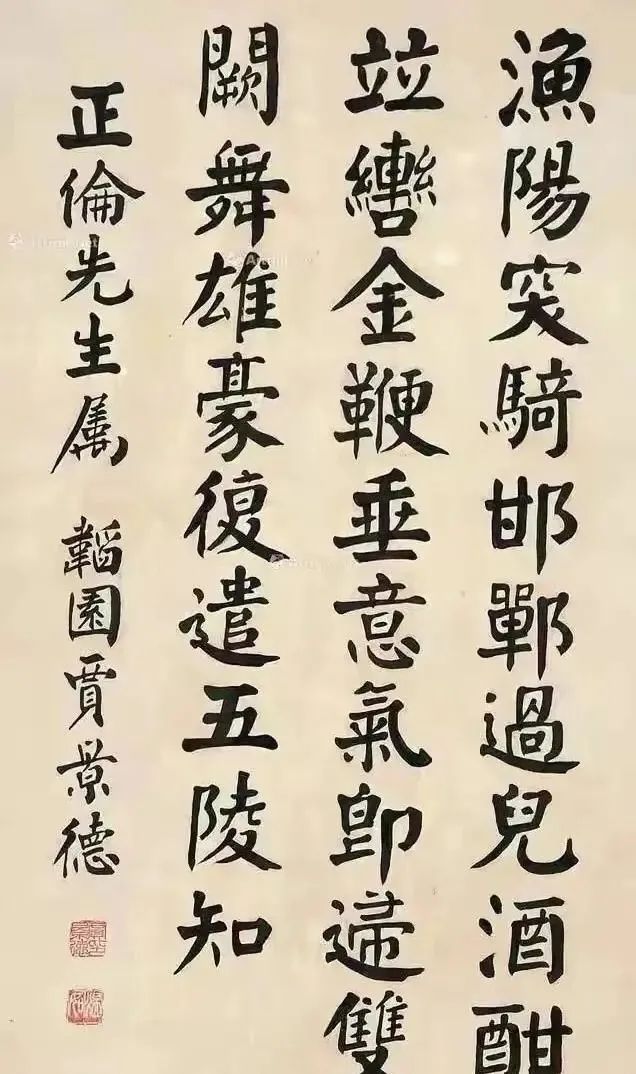 漁陽突騎邯鄲過兒酒酣
竝轡金鞭垂意氣卽歸雙
闕舞雄豪復遣五陵知
正倫先生属 韜園賈景德